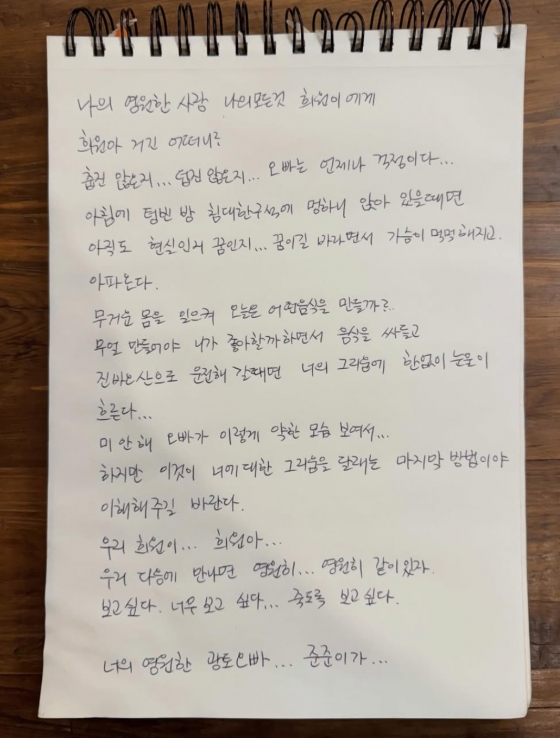 나의 영원한 사랑 나의모든것 희원이에게
희원아 거긴 어떠니?
춥진 않은지... 덥진 않은지... 오빠는 언제나 걱정이다...
아침에 텅빈 방 침대한구석에 멍하니 앉아 있을때면
아직도 현실인지 꿈인지... 꿈이길 바라면서 가슴이 먹먹해지고.
아파온다.
무거운 몸을 일으켜 오늘은 어떤음식을 만들까?
무얼 만들어야 니가 좋아할까하면서 음식을 싸들고
진바온산으로 운전해 갈때면 너의 그리움에 한없이 눈물이
흐른다...
미안해 오빠가 이렇게 약한 모습 보여서...
하지만 이것이 너에대한 그리움을 달래는 마지막 방법이야
이해해주길 바란다.
우리 희원이... 희원아...
우리 다음에 만나면 영원히... 영원히 같이있자.
보고싶다. 너무 보고 싶다... 죽도록 보고싶다.
너의 영원한 광토오빠... 준준이가...